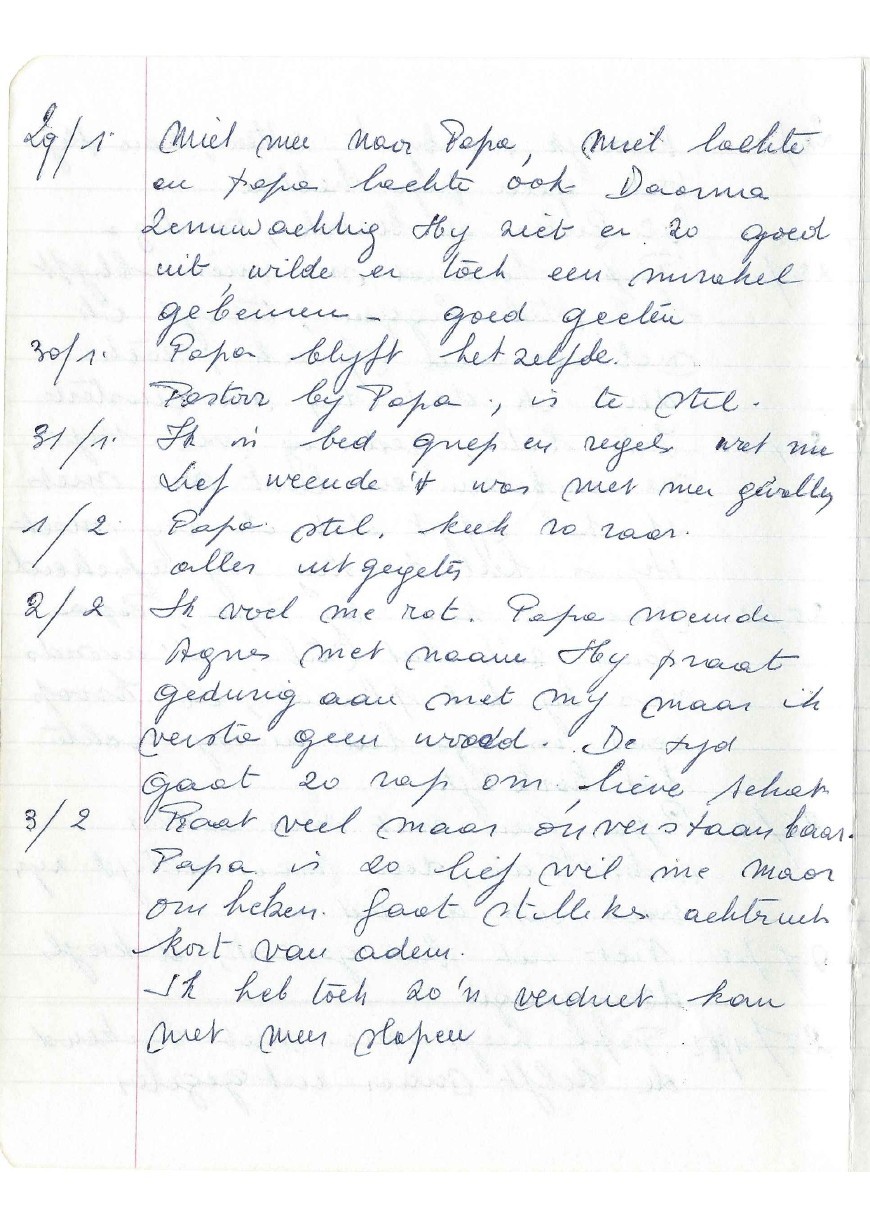 29/1. Miel mee naar Papa, Miel lachte
en papa lachte ook Daarna
zenuwachtig Hy ziet er zo goed
uit, wilde er toch een mirakel
gebeuren - goed geeten
30/1. Papa blyft het zelfde.
Pastoor by Papa, is te stil.
31/1. Ik in bed griep en regels met me
Lief weende 't was met mee gevallen
1/2 Papa stil, keek zo raar.
alles uitgegeten
2/2 Ik voel me rot. Papa noemde
Agnes met naam Hy praat
gedurig aan met my maar ik
versta geen woord. De tyd
gaat zo rap om, lieve schat
3/2 Praat veel maar onverstaanbaar.
Papa is zo lief wil me maar
om helzen. Gaat stillekes achteruit
kort van adem.
Ik heb toch zo'n verdriet kan
niet meer slapen